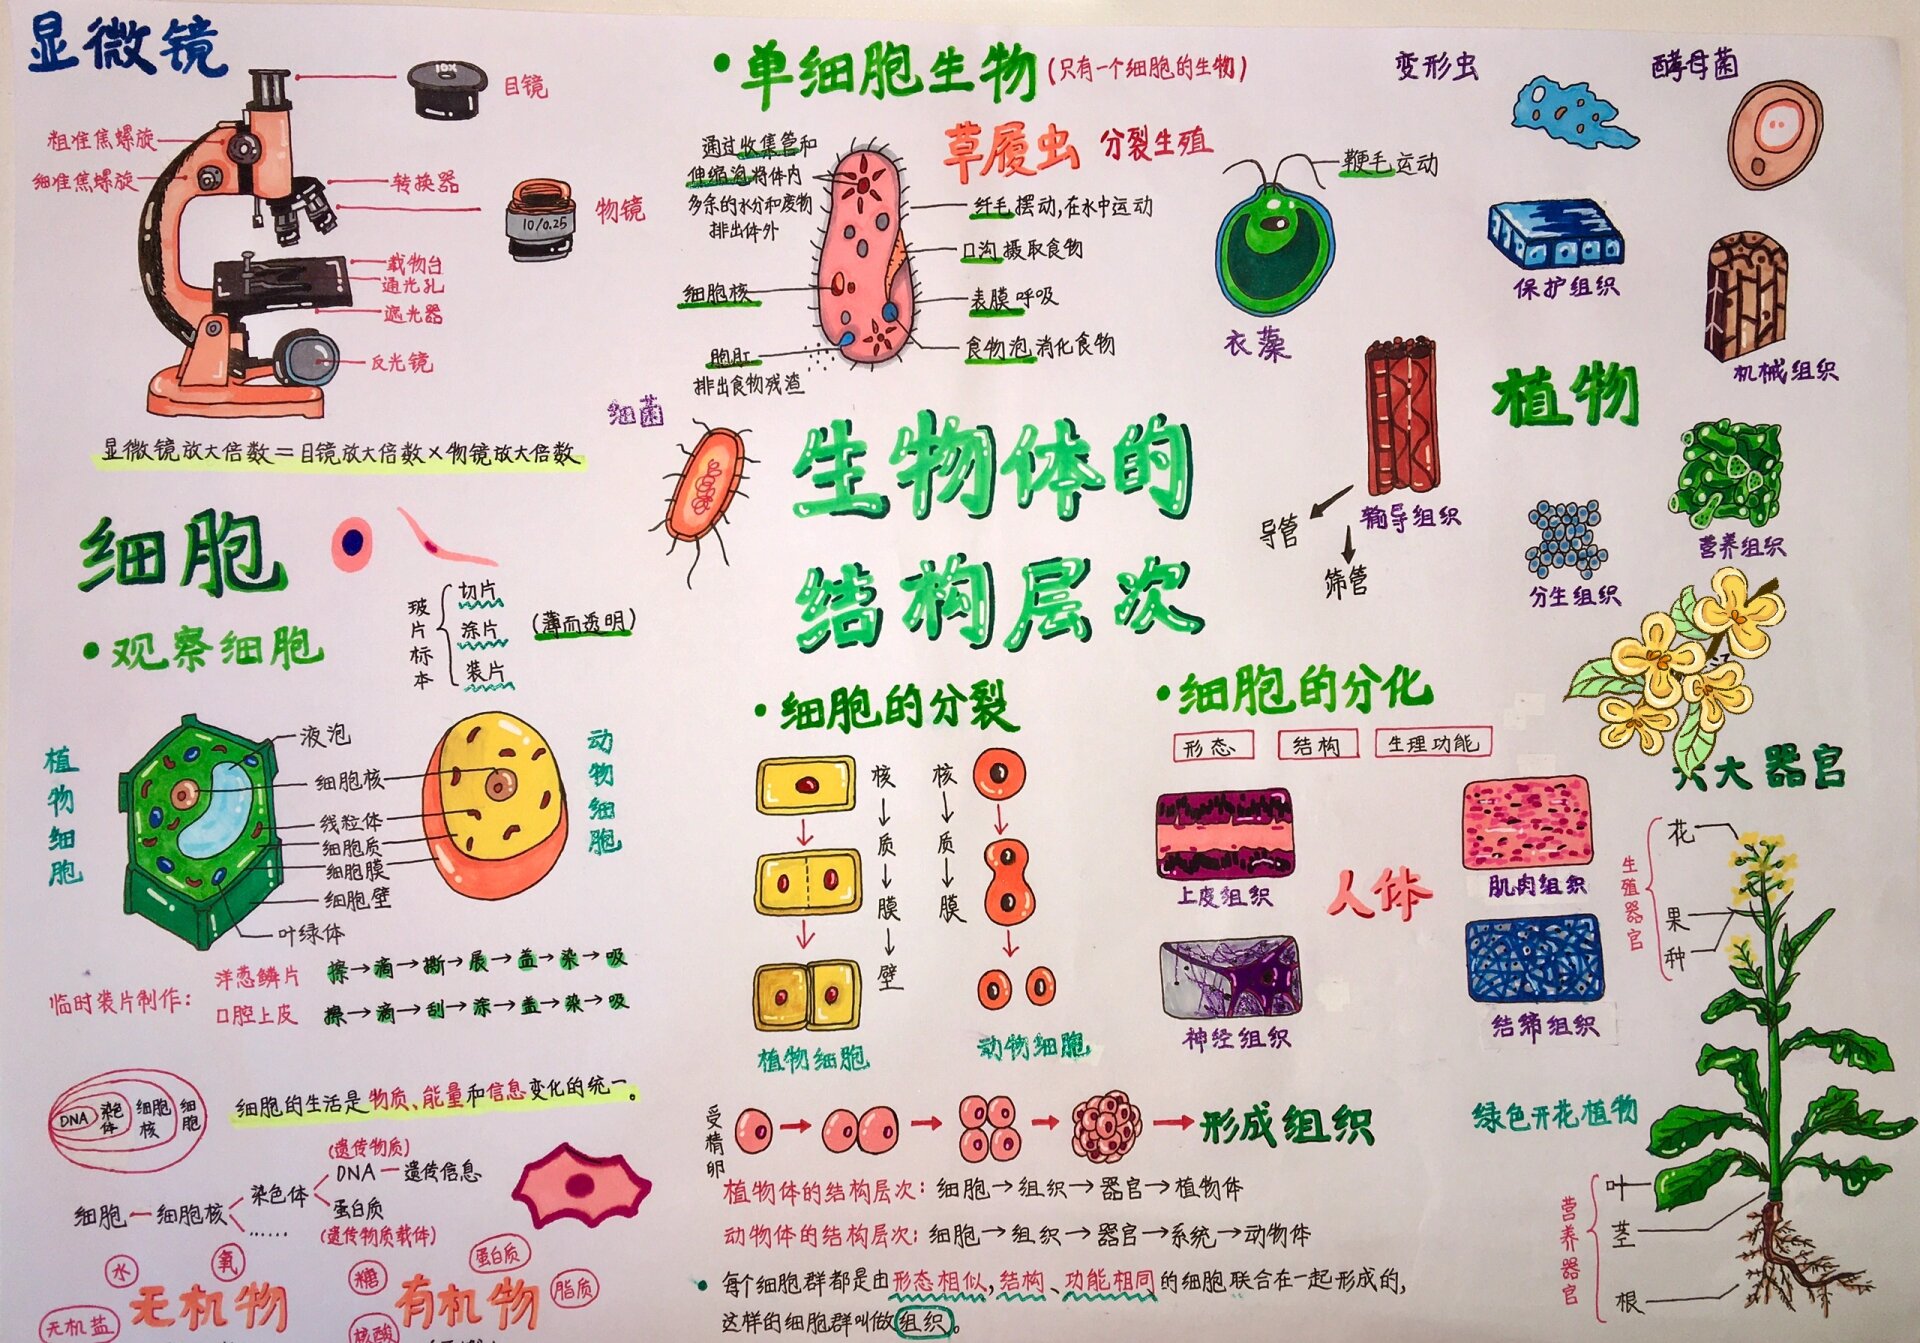 显微镜
10X
目镜
粗准焦螺旋
细准焦螺旋
转换器
物镜
10/0.25
载物台
通光孔
遮光器
反光镜
显微镜放大倍数=目镜放大倍数×物镜放大倍数
单细胞生物(只有一个细胞的生物)
草履虫 分裂生殖
通过收集管和
伸缩泡将体内
多余的水分和废物
排出体外
细胞核
胞肛
排出食物残渣
纤毛摆动,在水中运动
口沟摄取食物
表膜呼吸
食物泡消化食物
细菌
鞭毛运动
衣藻
变形虫
酵母菌
生物体的
结构层次
植物
保护组织
机械组织
输导组织
导管
筛管
营养组织
分生组织
细胞
观察细胞
玻片标本
切片
涂片
装片
(薄而透明)
植物细胞
动物细胞
液泡
细胞核
线粒体
细胞质
细胞膜
细胞壁
叶绿体
临时装片制作:
洋葱鳞片 擦→滴→撕→展→盖→染→吸
口腔上皮 擦→滴→刮→涂→盖→染→吸
DNA 染色体 细胞核 细胞
细胞的生活是物质、能量和信息变化的统一。
细胞—细胞核
染色体
……
(遗传物质)
DNA—遗传信息
蛋白质
(遗传物质载体)
水
氧
无机盐
无机物
糖
蛋白质
脂质
核酸
有机物
细胞的分裂
核→质→膜→壁
核→质→膜
植物细胞
动物细胞
细胞的分化
形态 结构 生理功能
上皮组织
肌肉组织
人体
神经组织
结缔组织
受精卵
形成组织
植物体的结构层次:细胞→组织→器官→植物体
动物体的结构层次:细胞→组织→器官→系统→动物体
每个细胞群都是由形态相似,结构、功能相同的细胞联合在一起形成的,
这样的细胞群叫做组织。
六大器官
生殖器官
花
果
种
绿色开花植物
营养器官
叶
茎
根